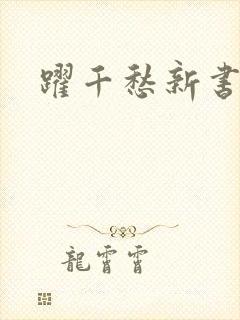 躍千愁新書
龍霄霄